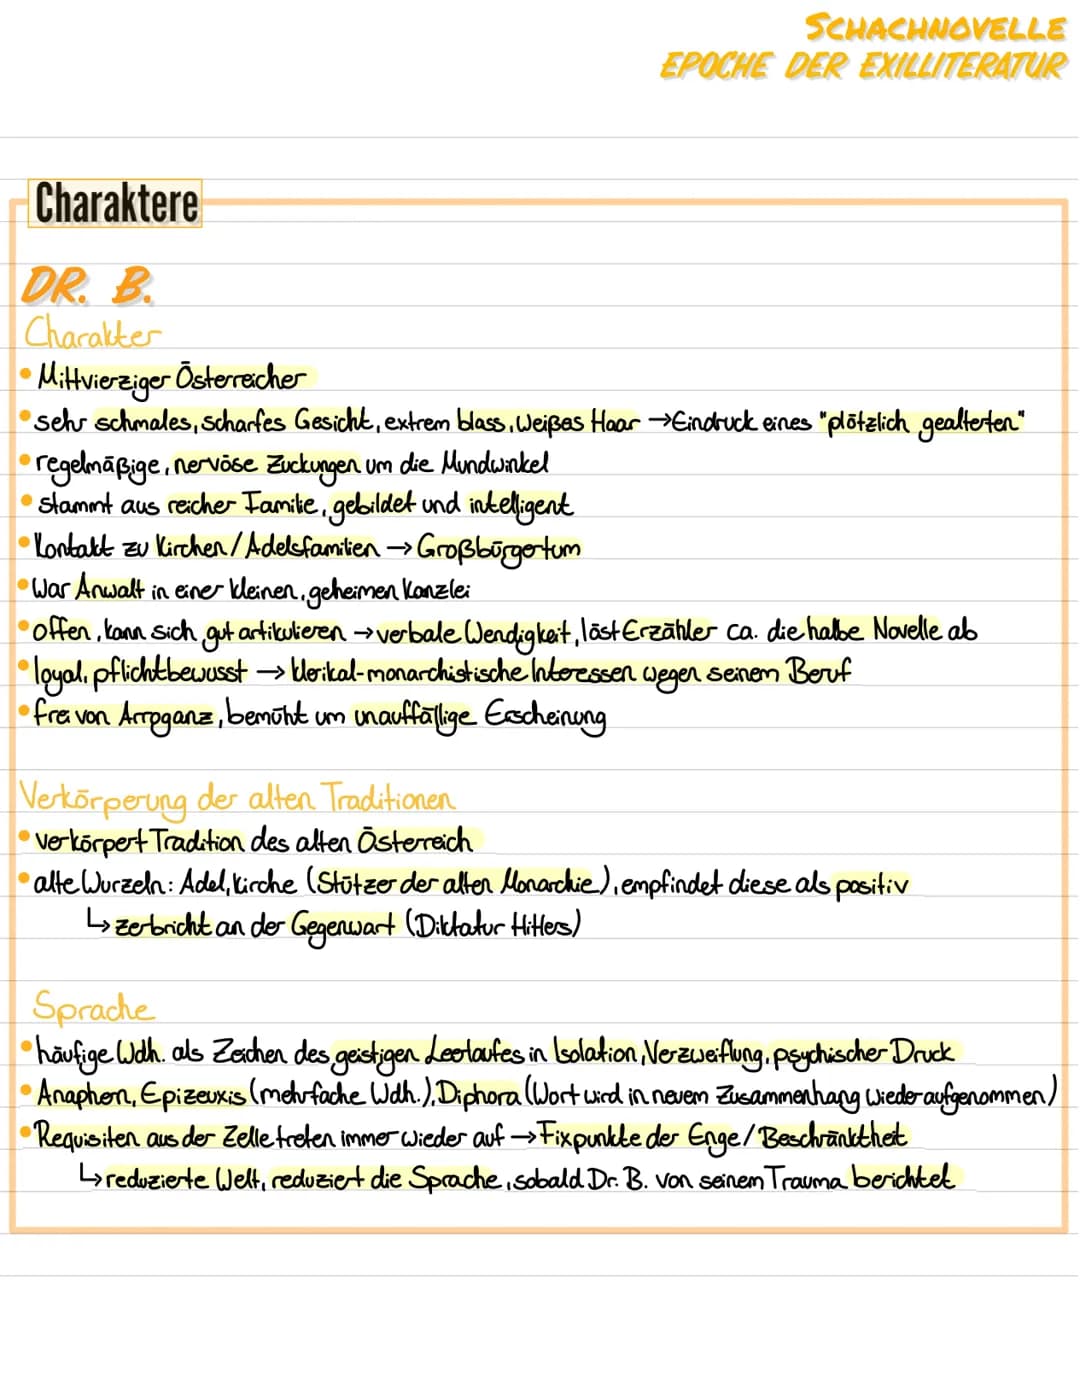 SCHACHNOVELLE
EPOCHE DER EXILLITERATUR
Charaktere
DR. B.
Charakter
• Mittvierziger Österreicher
• sehr schmales, scharfes Gesicht, extrem blass, Weißes Haar → Eindruck eines "plötzlich gealterten"
• regelmäßige, nervöse Zuckungen um die Mundwinkel
• stammt aus reicher Familie, gebildet und intelligent
• Kontakt zu Kirchen/Adelsfamilien → Großbürgertum
• War Anwalt in einer kleinen, geheimen Kanzlei
• offen, kann sich gut artikulieren → verbale Wendigkeit, löst Erzähler ca. die halbe Novelle ab
• loyal, pflichtbewusst → klerikal-monarchistische Interessen wegen seinem Beruf
• frei von Arroganz, bemüht um unauffällige Erscheinung
Verkörperung der alten Traditionen
• verkörpert Tradition des alten Österreich
• alte Wurzeln: Adel, Kirche (Stützer der alten Monarchie), empfindet diese als positiv
↳ zerbricht an der Gegenwart (Diktatur Hitlers)
Sprache
• häufige Wdh. als Zeichen des geistigen Leerlaufes in Isolation, Verzweiflung, psychischer Druck
• Anaphern, Epizeuxis (mehrfache Wdh.), Diphora (Wort wird in neuem Zusammenhang wieder aufgenommen)
• Requisiten aus der Zelle treten immer wieder auf → Fixpunkte der Enge/Beschränktheit
↳ reduzierte Welt, reduziert die Sprache, sobald Dr. B. von seinem Trauma berichtet